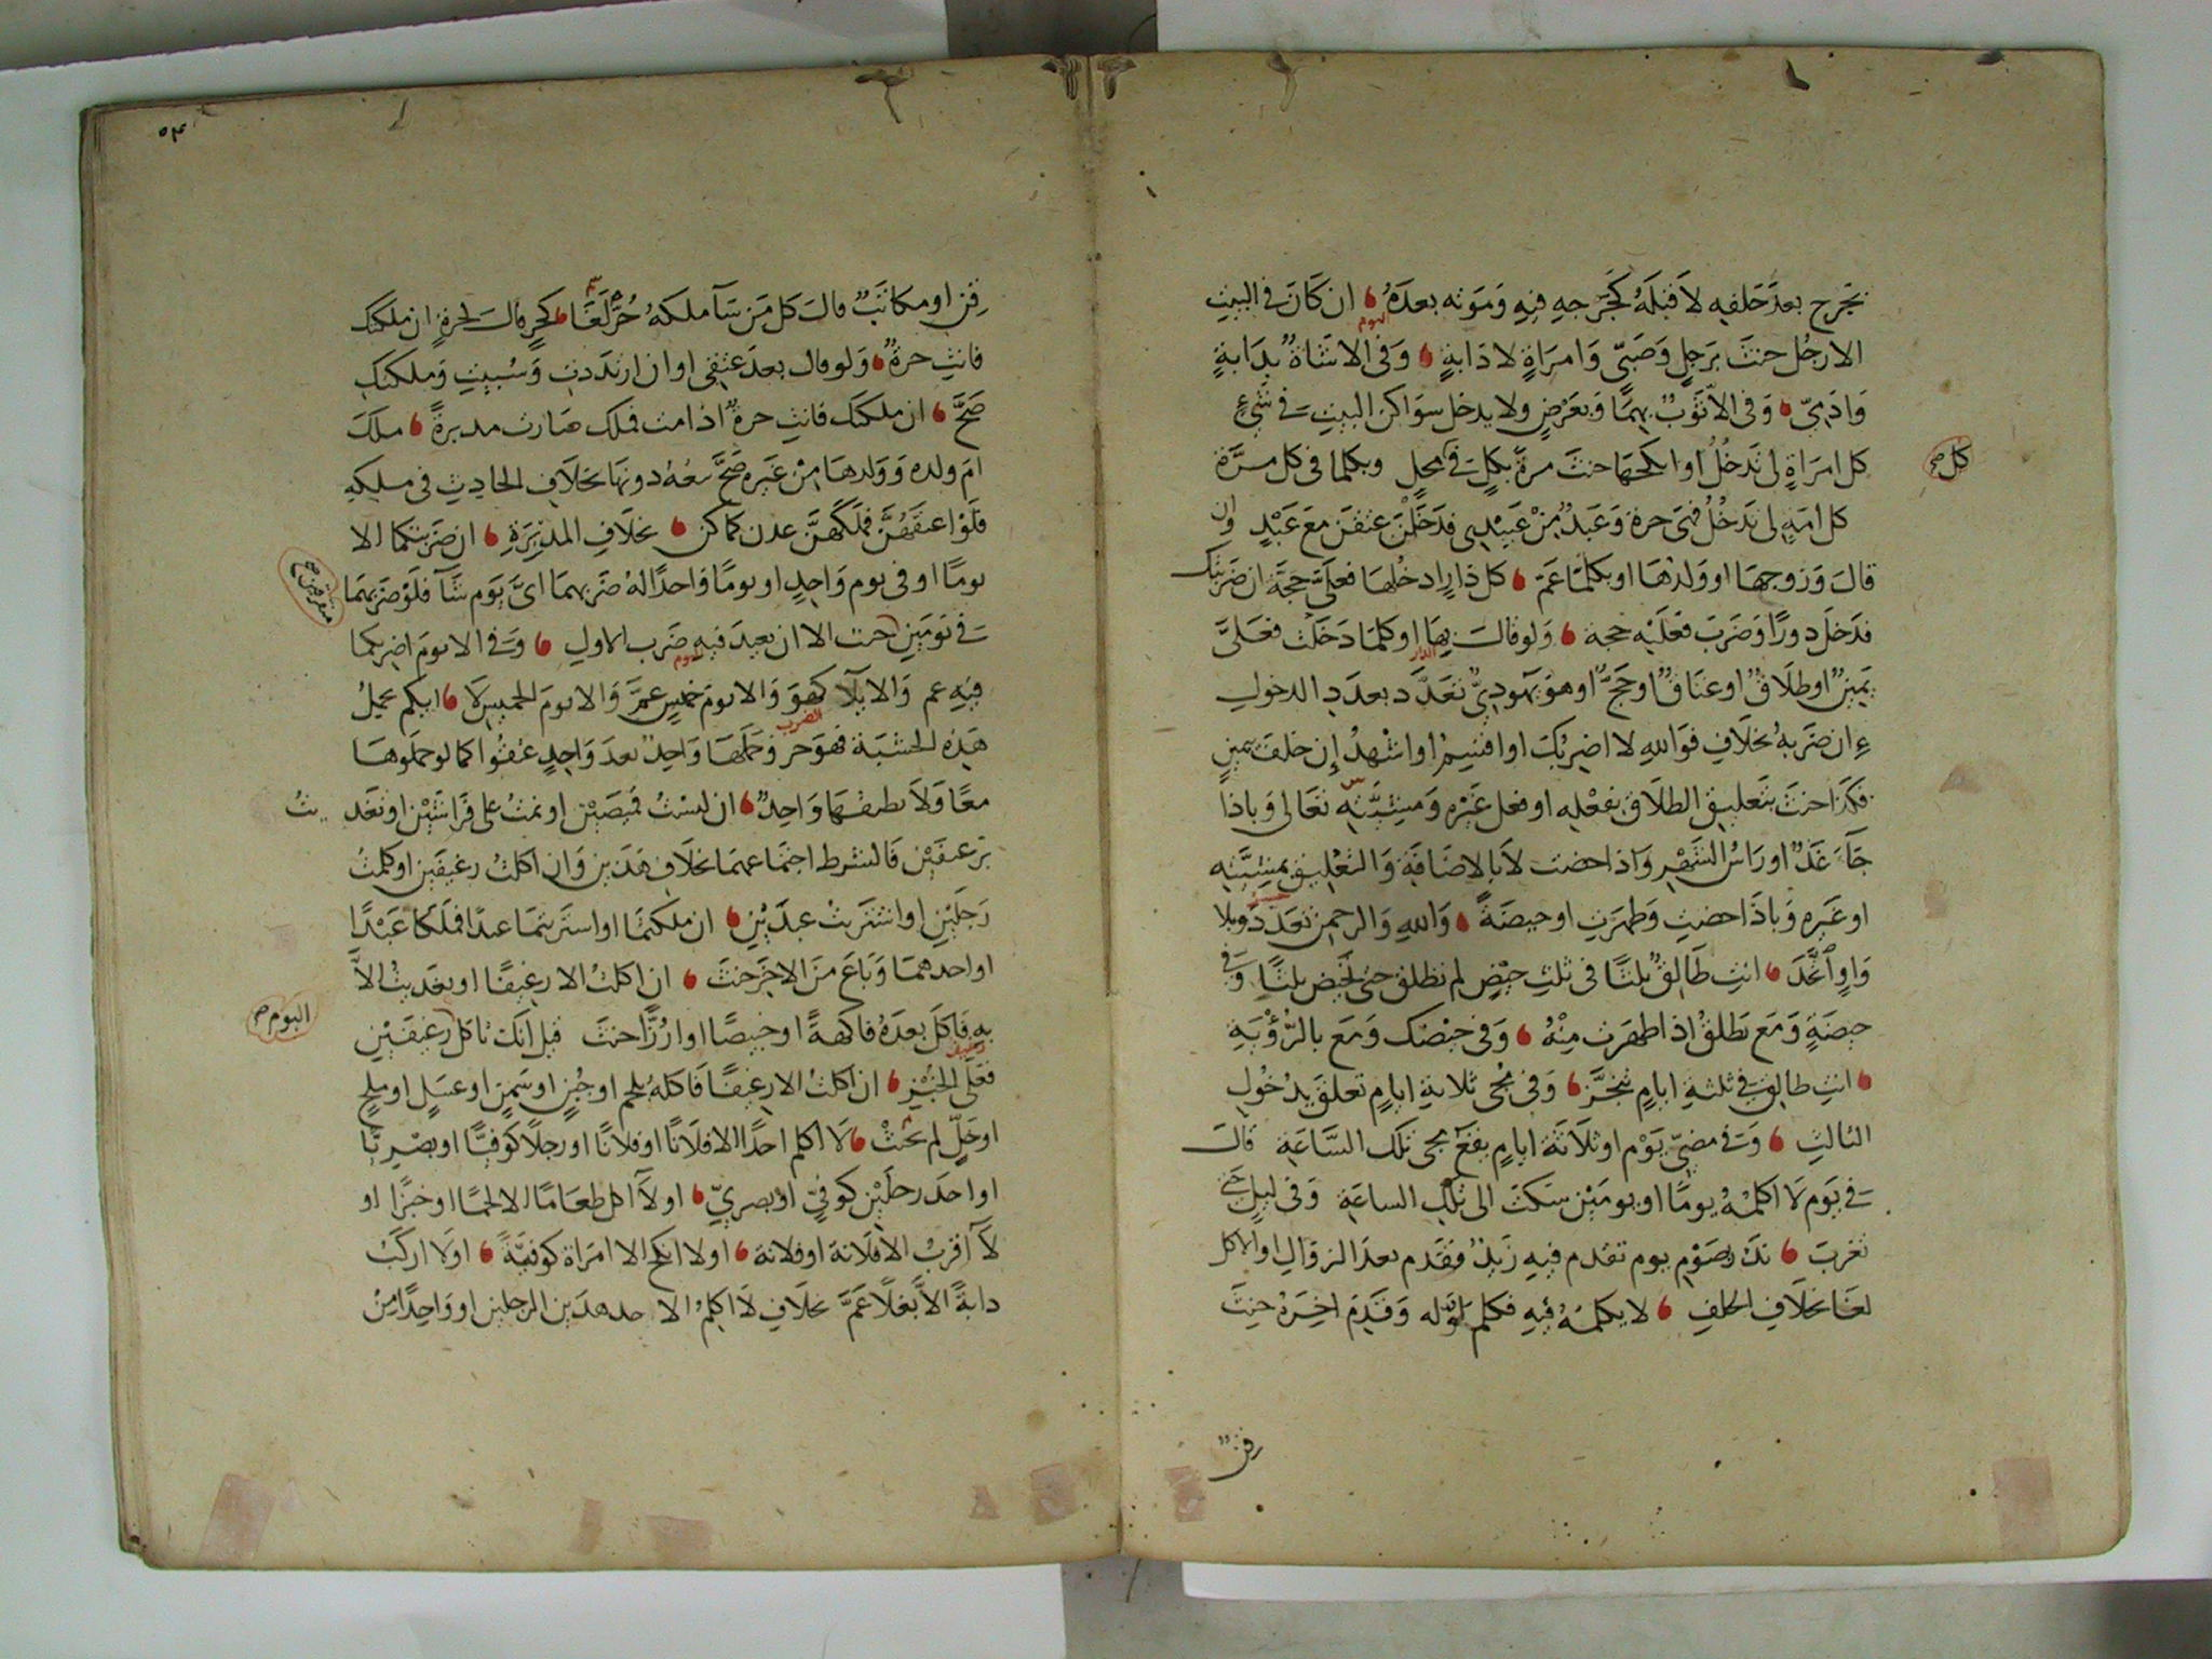 بخرج بعد حلفه لا قبله كجرحه فيه وموته بعده ان كان في البيت
الا رجل حنث برجل وصبي وامراة لا دابة وفي الا شاة بدابة
اليوم
وادمي وفي الا ثوب بهما وبعرض ولا يدخل سواكن البيت في شيء
كل امراة لي تدخل او انكحها حنث مرة بكل في محل وبكلما في كل مرة
كل صح
كل امة لي تدخل فهي حرة وعبد من عبيدي فدخلن عتقن مع عبد وان
قال وزوجها او ولدها او بكلما عم كل دار ادخلها فعلي حجة ان ضربتك
فدخل دورا وضرب فعليه حجة ولو قال بها او كلما دخلت فعلي
الدار
يمين او طلاق او عتاق او حج او هو يهودي تعدد بعدد الدخول
ان ضربه بخلاف فوالله لا اضربك او اقسم او اشهد ان حلف بيمين
فكذا حنث بتعليق الطلاق بفعله او فعل غيره ومشيته تعالى وباذا
جاء غد او راس الشهر واذا حضت لا بالاضافة والتعليق بمشيته
او غيره وباذا حضت وطهرت او حيضة والله والرحمن تعدد وبلا
واو اتحد انت طالق ثلثا في ثلث حيض لم تطلق حتى تحيض ثلثا وفي
حيضة ومع تطلق اذا طهرت منه وفي حيضك ومع بالرؤية
انت طالق في ثلثة ايام تنجز وفي مجي ثلاثة ايام تعلق بدخول
الثالث وفي مضي يوم او ثلاثة ايام يقع بمجي تلك الساعة قال
في يوم لا اكلمه يوما او يومين سكت الى تلك الساعة وفي ليل حتى
تغرب نذر صوم يوم تقدم فيه زيد فقدم بعد الزوال او الاكل
لغا بخلاف الحلف لا يكلمه فيه فكلم اوله وقدم اخره حنث
قن
٥٤
قن او مكاتب قال كل من سآملكه حر لغا كحر قال لحرة ان ملكتك
فانت حرة ولو قال بعد عتقي او ان ارتددت وسبيت وملكتك
صح ان ملكتك فانت حرة اذا مت فملك صارت مدبرة ملك
ام ولده وولدها من غيره صح بيعه دونها بخلاف الحادث في ملكه
فلو اعتقهن فملكهن عدن كما كن بخلاف المدبرة ان ضربتكما الا
يوما او في يوم واحد او يوما واحدا له ضربهما اي يوم شآ فلو ضربهما
في يومين حنث الا ان يعيد فيه ضرب الاول وفي الا يوم اضربكما
فيه عم والا بلا كهو والا يوم خميس عم والا يوم الخميس لا ايكم حمل
الضرب
هذه الخشبة فهو حر وحملها واحد بعد واحد عتقوا كما لو حملوها
معا ولا يطيقها واحد ان لبست قميصين او نمت على فراشين او تغد يت
برغيفين فالشرط اجتماعهما بخلاف هذين وان اكلت رغيفين او كلمت
رجلين او اشتريت عبدين ان ملكتما او اشتريتما عبدا فملكا عبدا
او احدهما وباع من الاخر حنث ان اكلت الا رغيفا او تغديت الا
به فاكل بعده فاكهة او خبيصا او ارزا حنث قيل انك تاكل رغيفين
اليوم صح
فعلى الخبز ان اكلت الا رغيفا فاكله بلحم او جبن او سمن او عسل او ملح
او خل لم يحنث لا اكلم احدا الا فلانا او فلانا او رجلا كوفيا او بصريا
او احد رجلين كوفي او بصري او لا اكل طعاما الا لحما او خبزا او
لا اقرب الا فلانة او فلانة او لا انكح الا امراة كوفية او لا اركب
دابة الا بغلا عم بخلاف لا اكلم الا احد هذين الرجلين او واحدا من